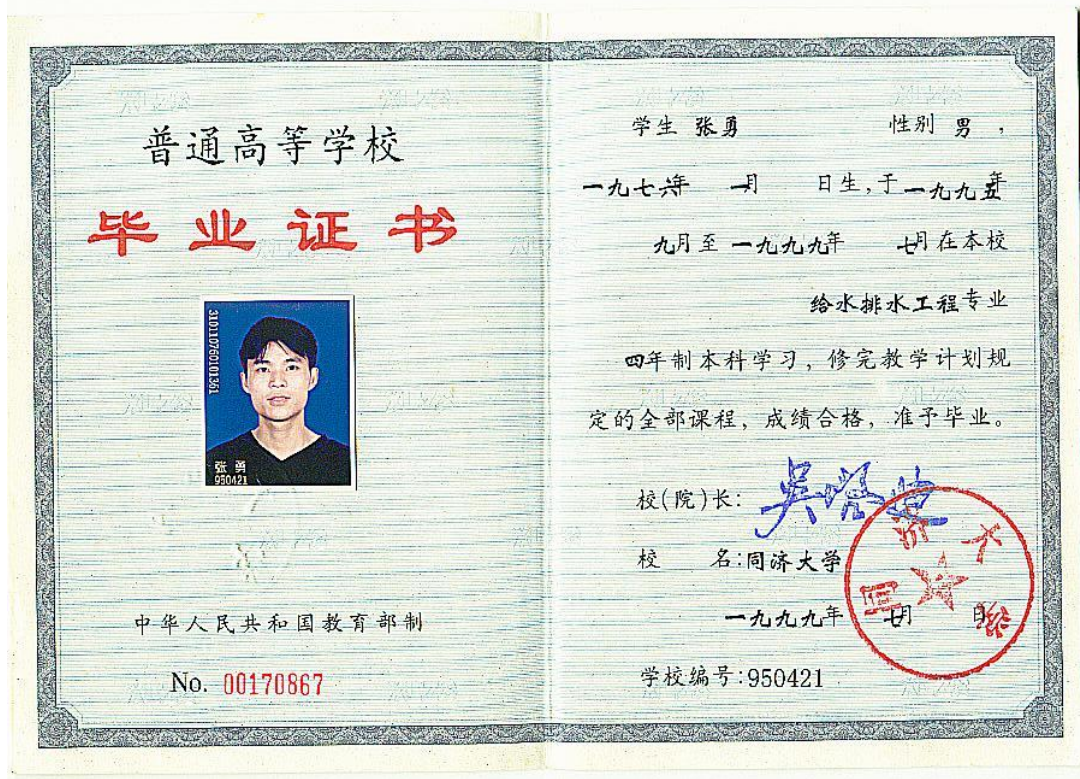 普通高等学校
毕业证书
310110760101361
张勇
950421
中华人民共和国教育部制
No. 00170867
学生 张勇 性别 男，
一九七六年 一月 日生，于一九九五年
九月至一九九九年 七月在本校
给水排水工程专业
四年制本科学习，修完教学计划规
定的全部课程，成绩合格，准予毕业。
校（院）长：吴启迪
校 名：同济大学
一九九九年 七月 日
学校编号：950421
同济大学